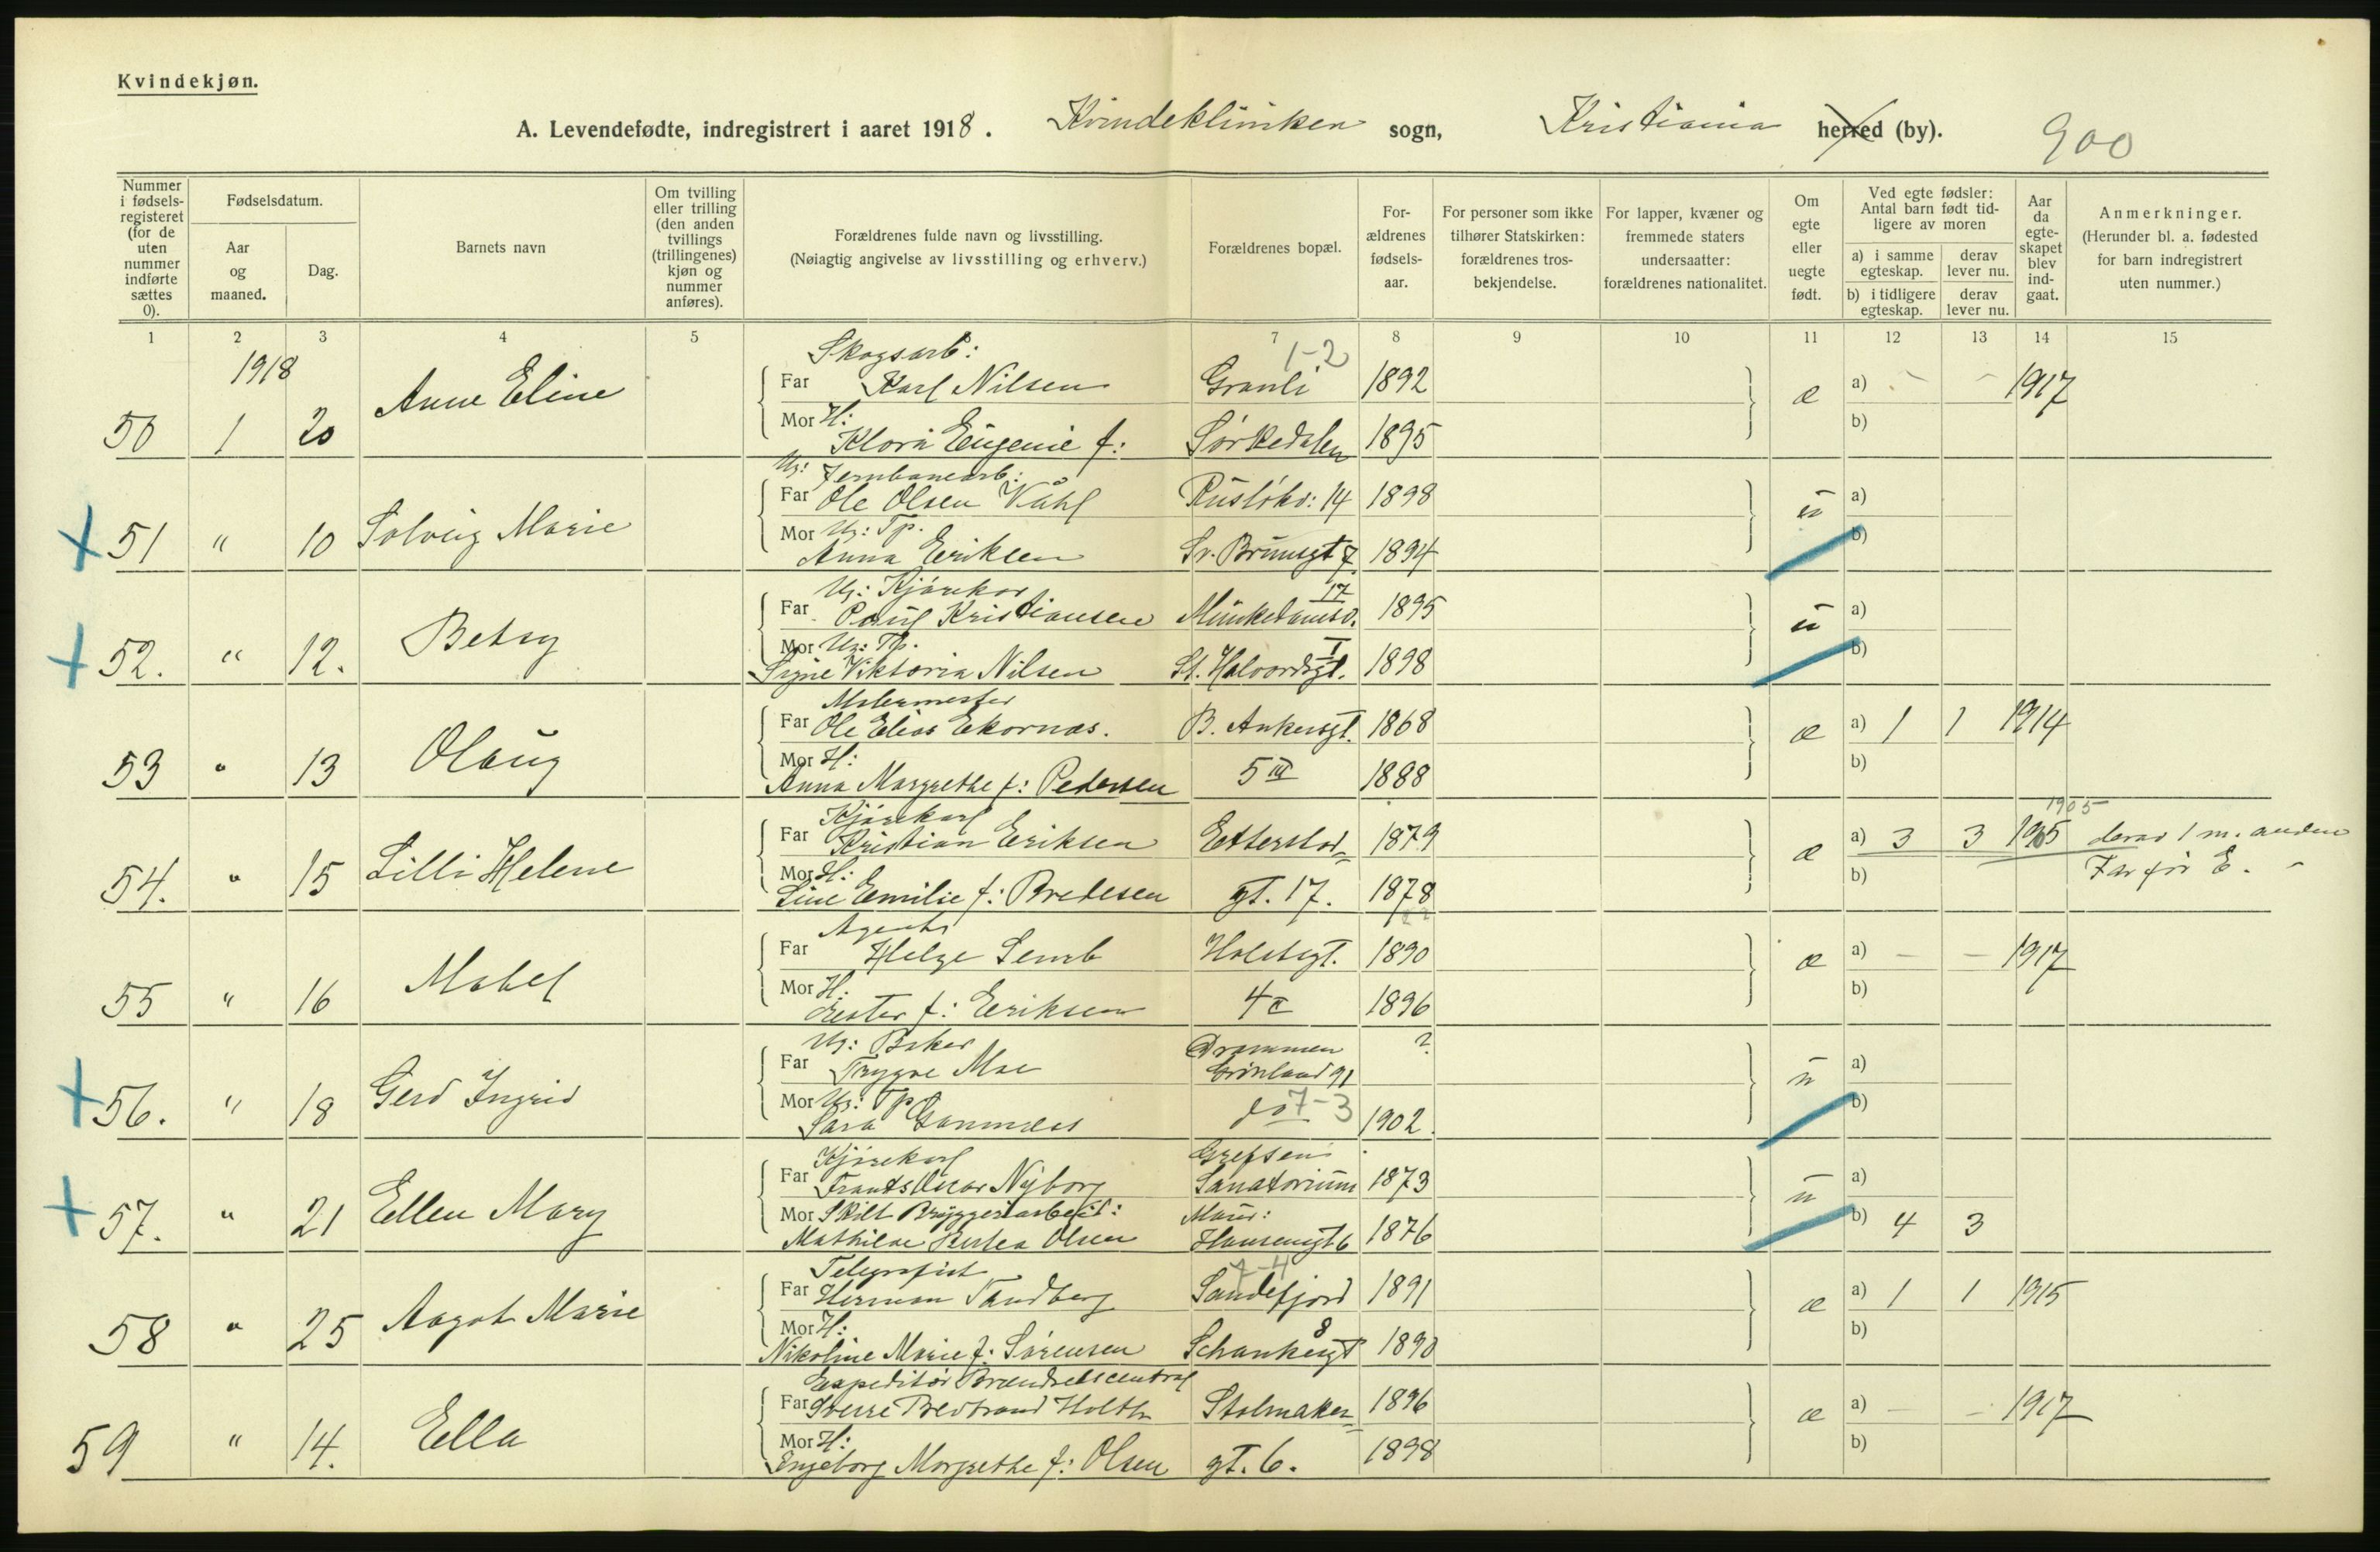 Kvindekjøn.
A. Levendefødte, indregistrert i aaret 1918. Kvindekliniken sogn, Kristiania herred (by). 900
Nummer i fødsels-registeret (for de uten nummer indførte sættes 0).
Fødselsdatum.
Aar og maaned.
Dag.
Barnets navn
Om tvilling eller trilling (den anden tvillings (trillingenes) kjøn og nummer anføres).
Forældrenes fulde navn og livsstilling.
(Nøiagtig angivelse av livsstilling og erhverv.)
Forældrenes bopæl.
For-ældrenes fødsels-aar.
For personer som ikke tilhører Statskirken: forældrenes tros-bekjendelse.
For lapper, kvæner og fremmede staters undersaatter: forældrenes nationalitet.
Om egte eller uegte født.
Ved egte fødsler: Antal barn født tid-ligere av moren
a) i samme egteskap. derav lever nu.
b) i tidligere egteskap. derav lever nu.
Aar da egte-skapet blev ind-gaat.
Anmerkninger.
(Herunder bl. a. fødested for barn indregistrert uten nummer.)
1 2 3 4 5 7 8 9 10 11 12 13 14 15
1918 Skogsarb: 1-2
Far Karl Nilsen Granli 1892 a) - - 1917
50 1 20 Anne Eline æ
Mor H: Klora Eugenie f: Sørkedalen 1895 b)
Ug: Jernbanearb:
Far Ole Olsen Våhl Rusløkv: 14 1898 a)
51 " 10 Solveig Marie u
Mor Ug: Tp. Anna Eriksen Sv. Brunsgt 7 1894 b)
Ug: Kjørekar 17
Far Paul Kristiansen Munkedamsv. 1895 a)
52. " 12. Betsy u
Mor Ug: Tp. I
Signe Viktoria Nilsen St. Halvardsgt. 1898 b)
Malermester
Far Ole Elias Ekornås. B. Ankersgt. 1868 a) 1 1 1914
53 " 13 Olaug æ
Mor H: Anna Margrethe f: Pedersen 5 III 1888 b)
Kjørekarl 1905
Far Kristian Eriksen Etterstad- 1879 a) 3 3 1905 derav 1 m. anden
54. " 15 Lilli Helene æ Far før E. -
Mor H: Line Emilie f: Bredesen gt. 17. 1878 b)
Agent
Far Helge Semb Holstsgt. 1890 a) - - 1917
55 " 16 Mabel æ
Mor H: Ester f: Eriksen 4 1896 b)
Ug: Baker Drammen ?
Far Trygve Moe Grønland 91 a)
56. " 18 Gerd Ingrid u
Mor Ug: Tp do 7-3
Sara 1902. b)
Kjørekarl Grefsen
Far Frants Oscar Nyborg Sanatorium 1873 a)
57. " 21 Ellen Mary u
Mor Skilt Bryggeriarbeid: Maur:
Mathilde Olsen Hansensgt 6 1876 b) 4 3
Telegrafist 7-4
Far Herman Tandberg Sandefjord 1891 a) 1 1 1915
58 " 25 Aagot Marie æ
Mor H: 8
Nikoline Marie f. Sørensen Schankesgt 1890 b)
Expeditør Brændselscentral
Far Sverre Bertrand Holth Stolmaker- 1896 a) - - 1917
59 " 14. Ella æ
Mor H: Engeborg Margrethe f: Olsen gt. 6. 1898 b)